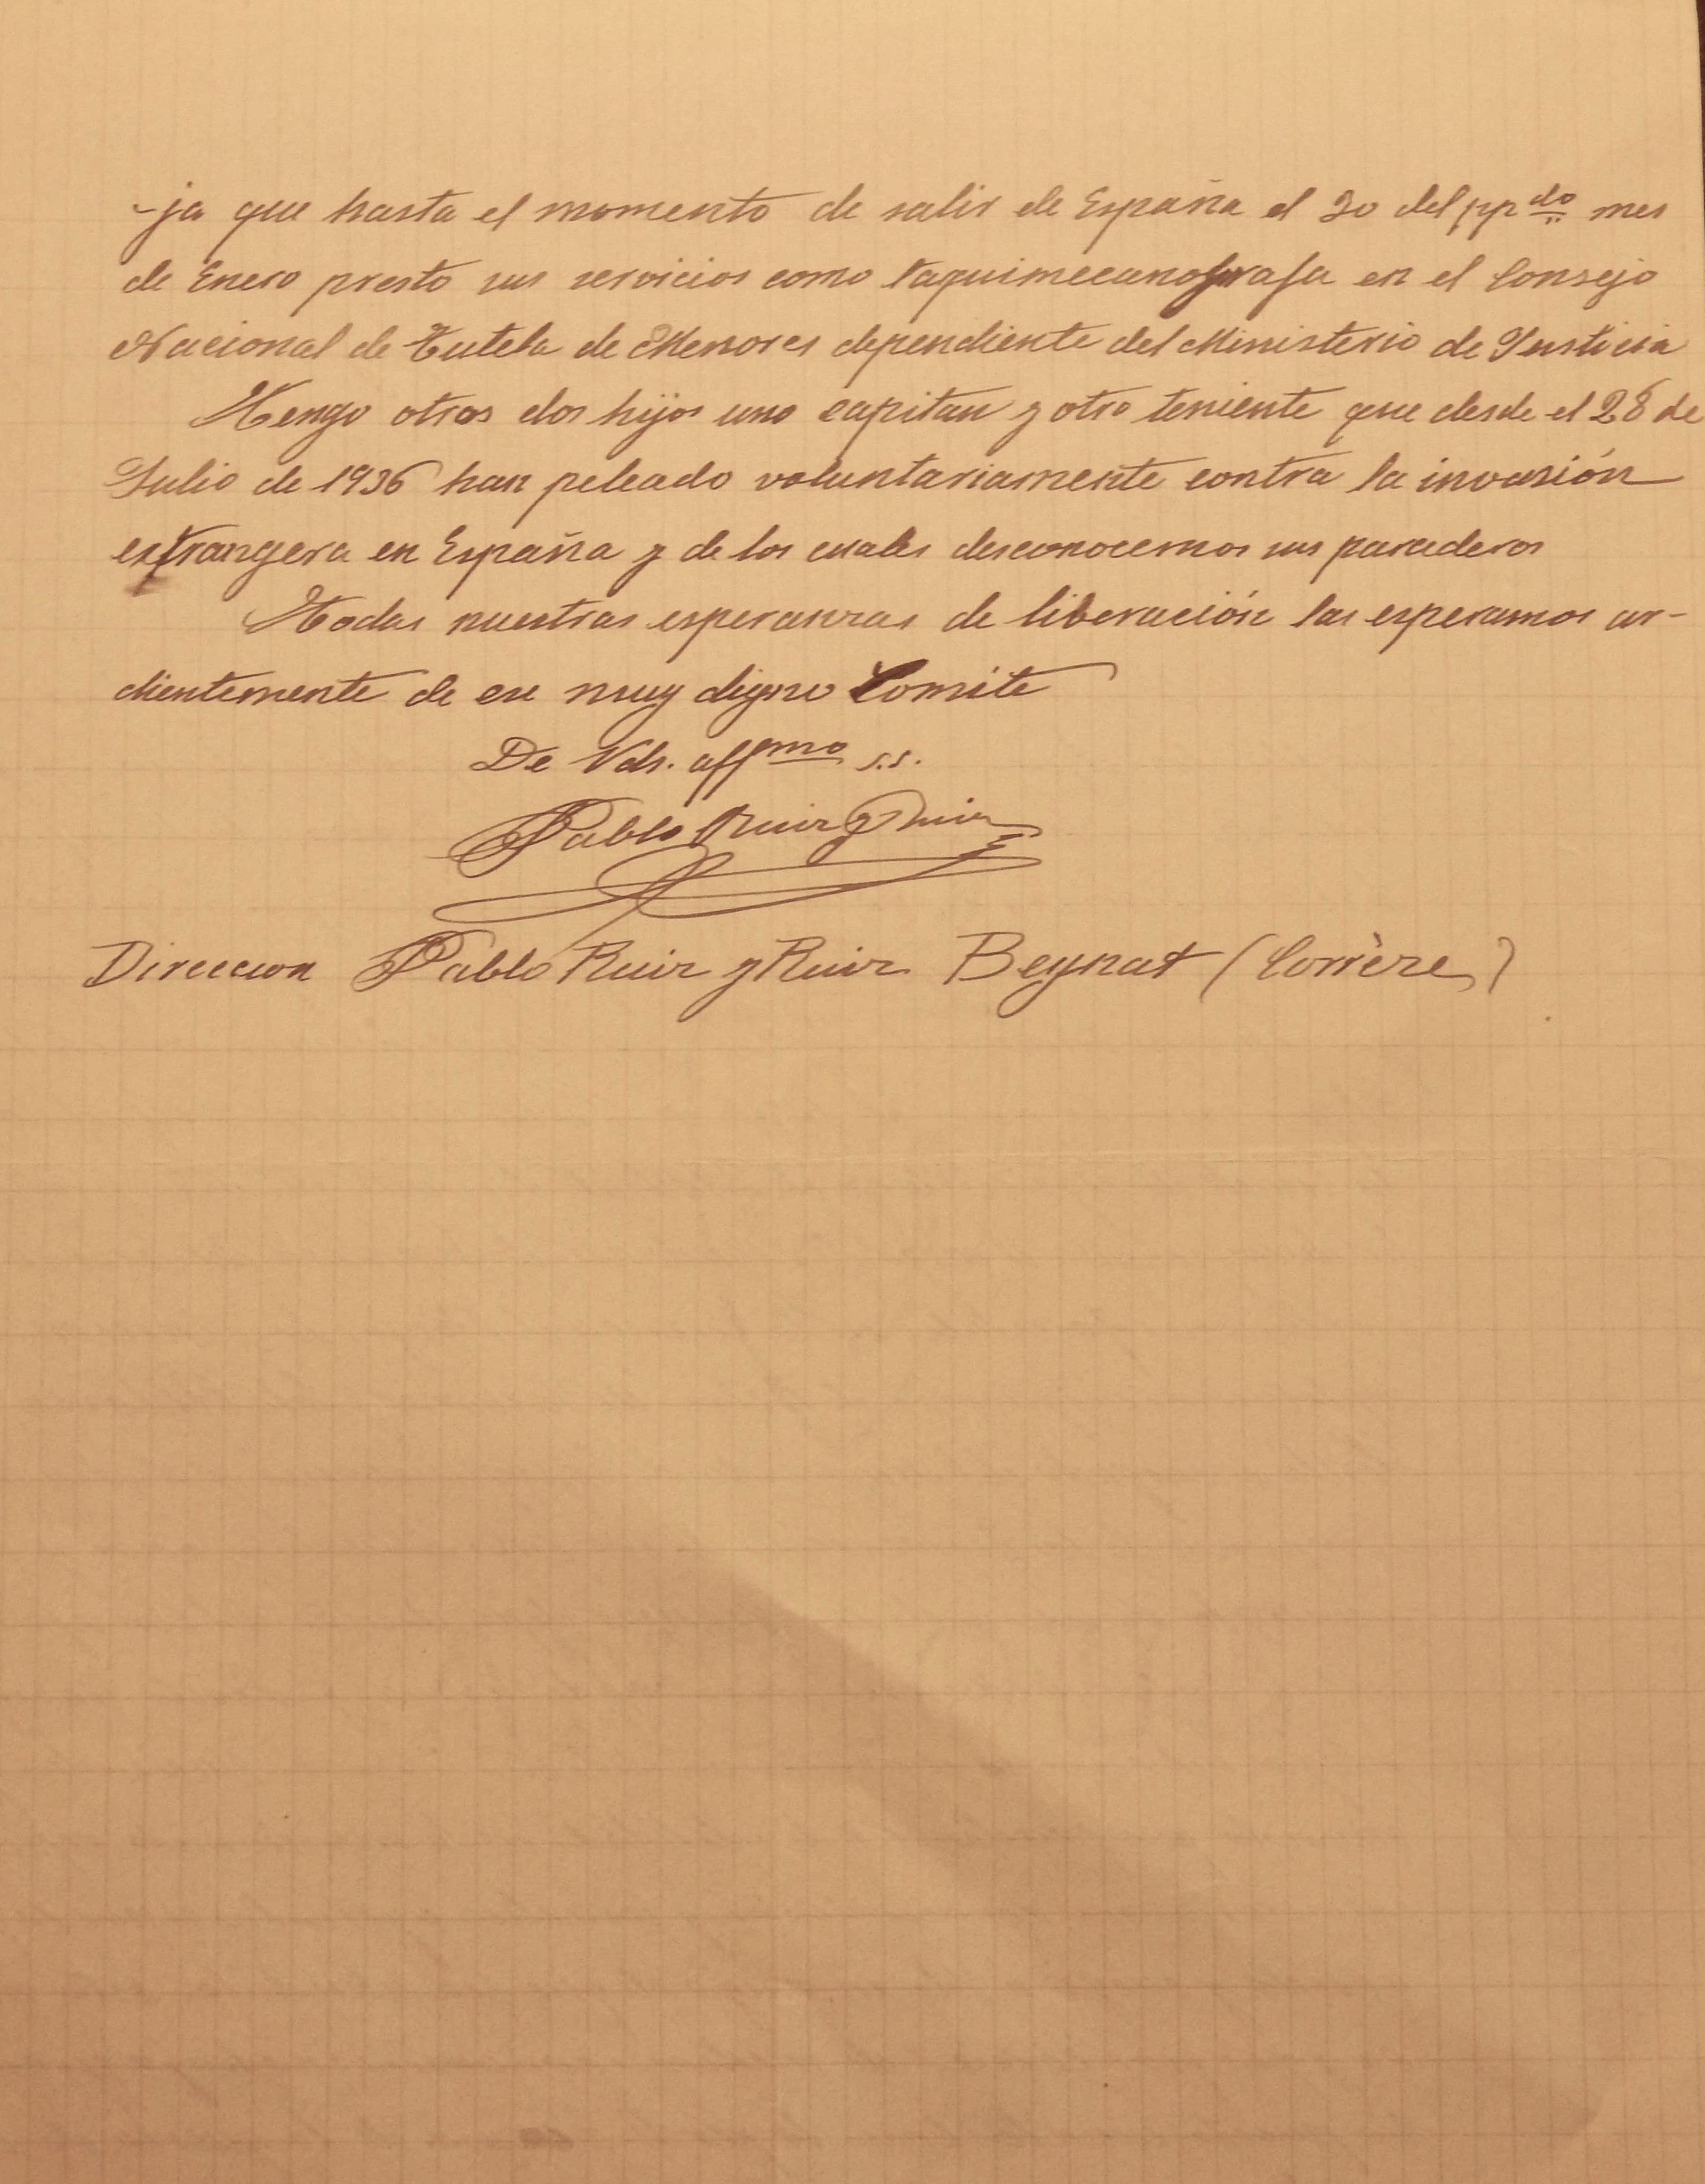 -ja que hasta el momento de salir de España el 30 del ppdo mes
de Enero presto sus servicios como taquimecanografa en el Consejo
Nacional de Tutela de Menores dependiente del Ministerio de Justicia
Tengo otros dos hijos uno capitan y otro teniente que desde el 28 de
Julio de 1936 han peleado voluntariamente contra la invasión
extrangera en España y de los cuales desconocemos sus paraderos
Todas nuestras esperanzas de liberación las esperamos ar-
dientemente de ese muy digno Comite
De Vds. affmo s.s.
Pablo Ruiz y Ruiz
Direccion Pablo Ruiz y Ruiz Beynat (Corrèze)